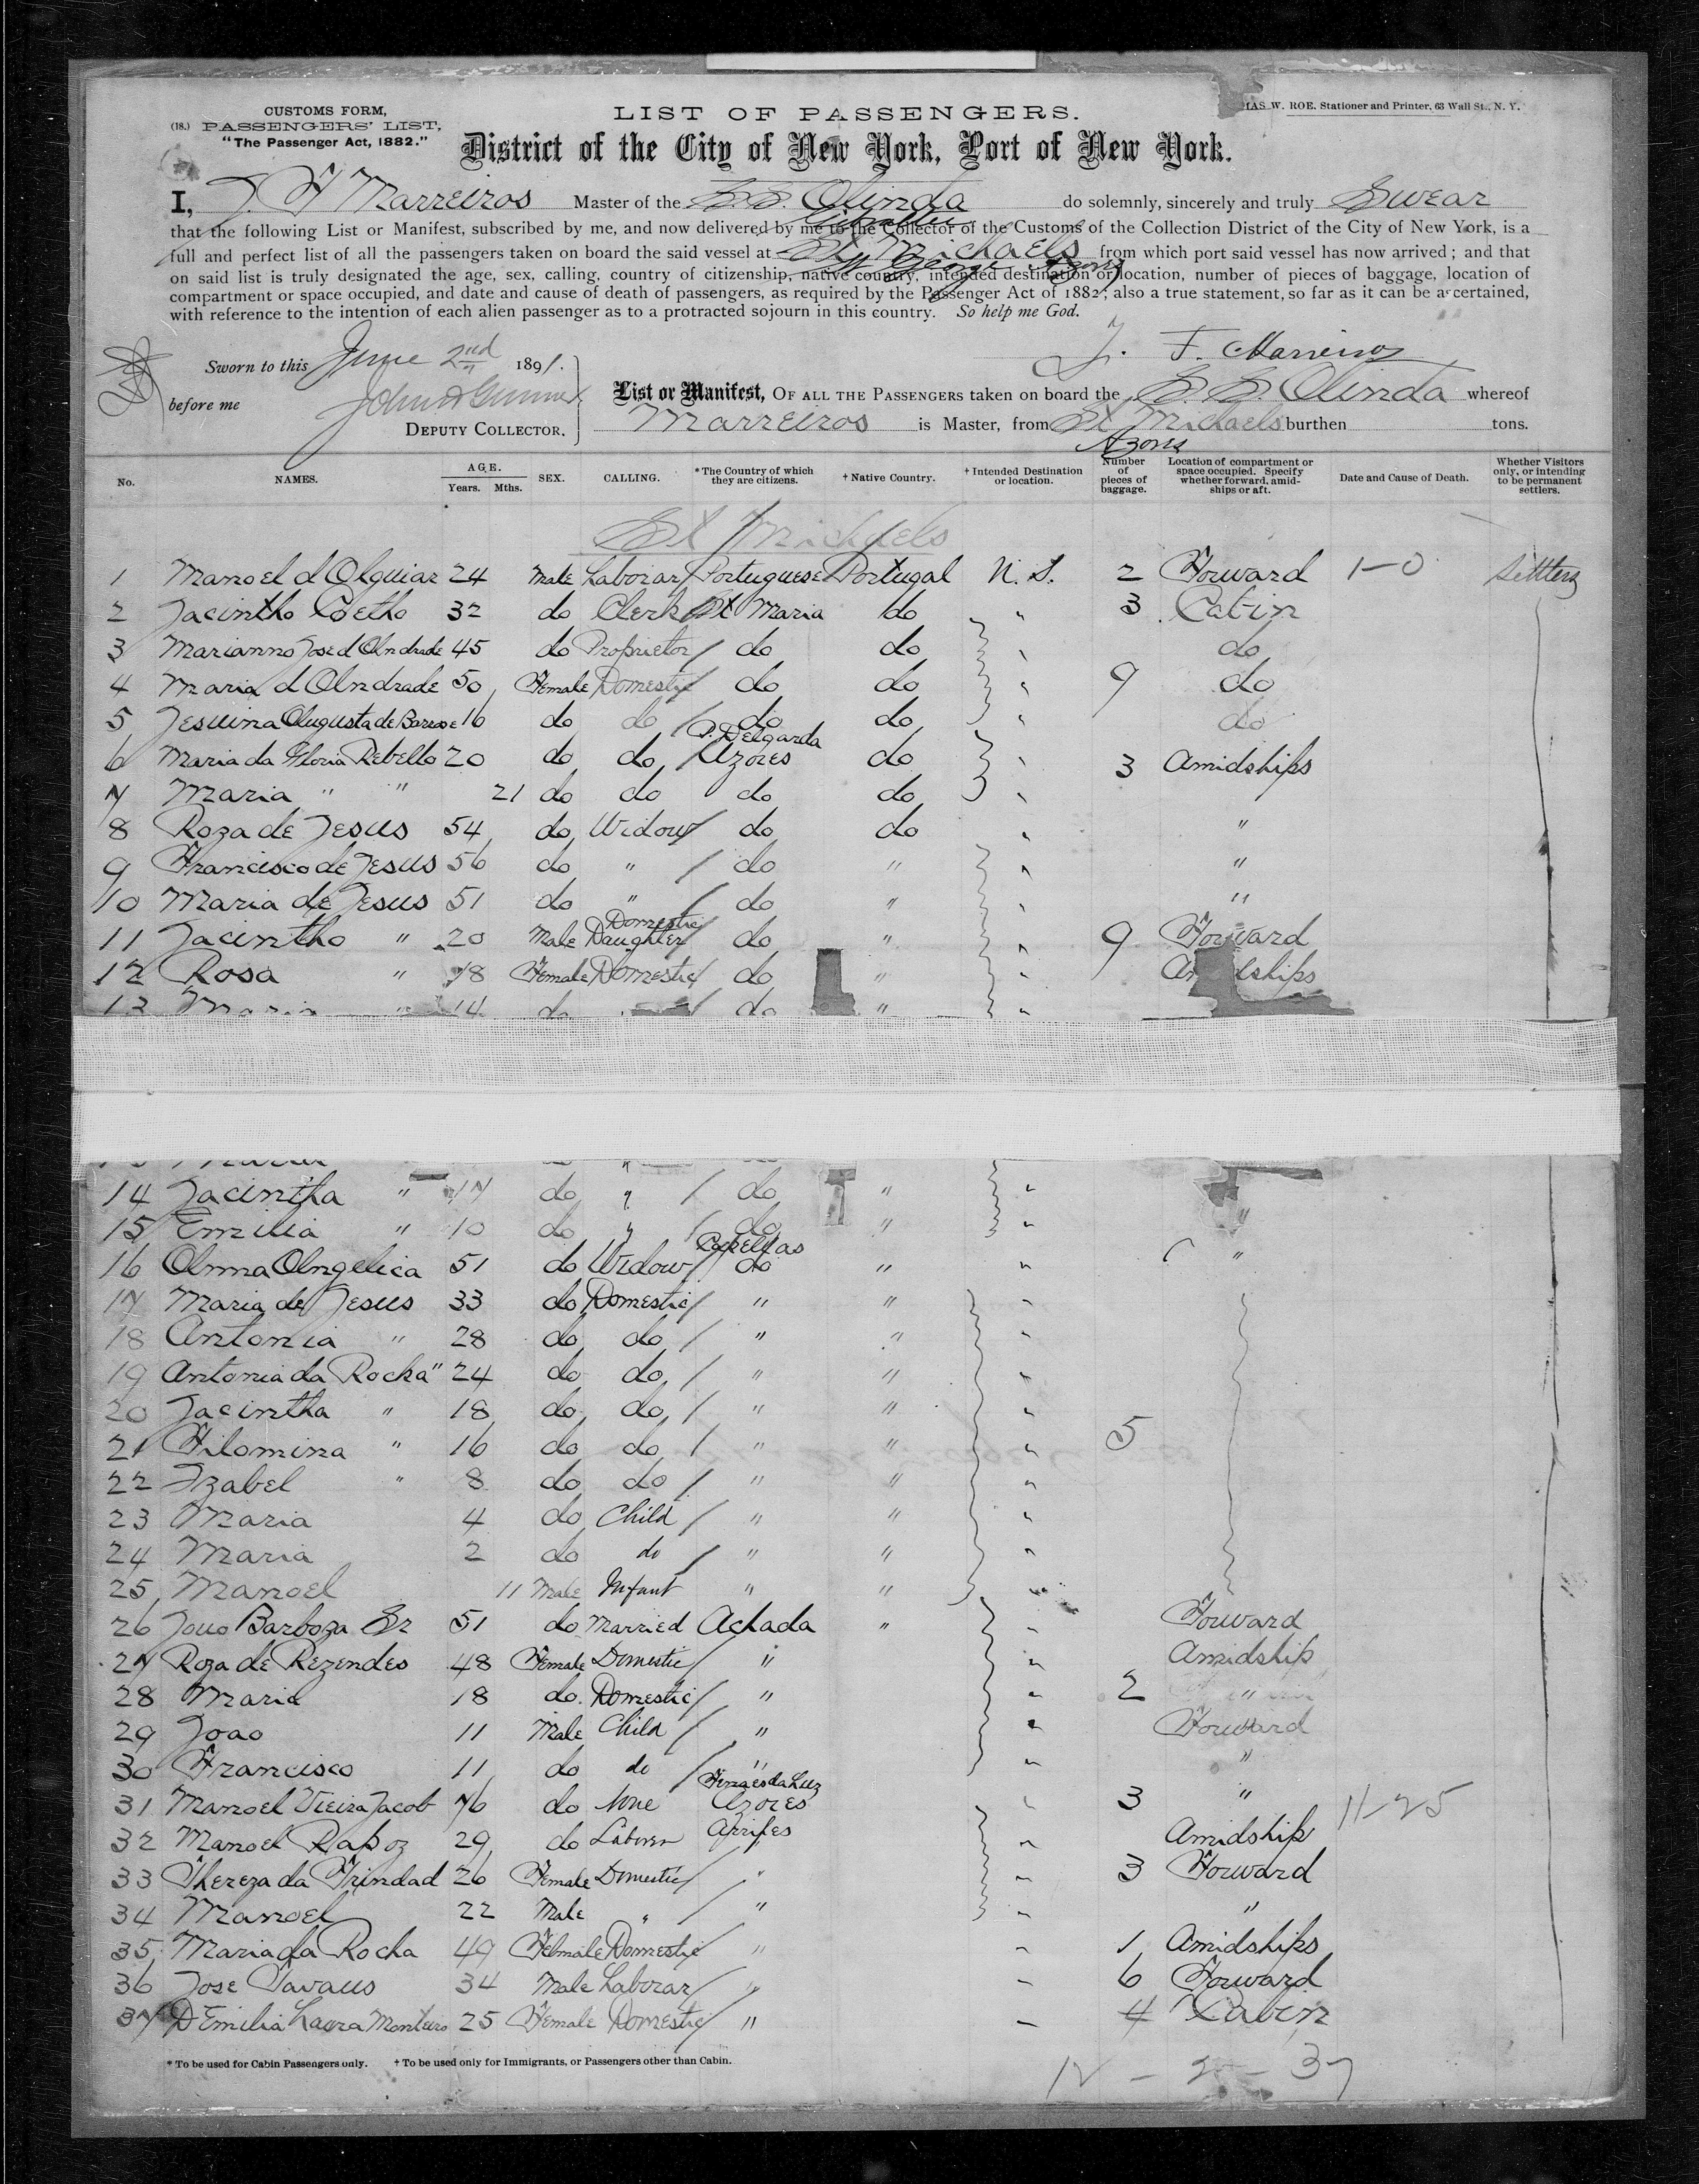 CUSTOMS FORM,
(18.) PASSENGERS' LIST,
"The Passenger Act, 1882."
LIST OF PASSENGERS.
W. ROE. Stationer and Printer, 63 Wall St., N. Y.
District of the City of New York, Port of New York.
I, J. F Marreiros Master of the S.S. Olinda do solemnly, sincerely and truly Swear
that the following List or Manifest, subscribed by me, and now delivered by me to the Collector of the Customs of the Collection District of the City of New York, is a
full and perfect list of all the passengers taken on board the said vessel at St Michaels from which port said vessel has now arrived ; and that
on said list is truly designated the age, sex, calling, country of citizenship, native country, intended destination or location, number of pieces of baggage, location of
compartment or space occupied, and date and cause of death of passengers, as required by the Passenger Act of 1882; also a true statement, so far as it can be ascertained,
with reference to the intention of each alien passenger as to a protracted sojourn in this country. So help me God.
J. F. Marreiros
Sworn to this June 2nd 1891.
before me
DEPUTY COLLECTOR.
List or Manifest, OF ALL THE PASSENGERS taken on board the S.S. Olinda whereof
Marreiros is Master, from St Michaels burthen tons.
Azores
No. NAMES. AGE. Years. Mths. SEX. CALLING. *The Country of which they are citizens. † Native Country. † Intended Destination or location. Number of pieces of baggage. Location of compartment or space occupied. Specify whether forward, amidships or aft. Date and Cause of Death. Whether Visitors only, or intending to be permanent settlers.
St Michaels
1 Manoel d Aguiar 24 Male Laborar Portuguese Portugal 2 Forward 1-0 Settlers
2 Jacintho Coetho 32 do Clerk St Maria do " 3 Cabin
3 Marianno Jose d Andrade 45 do Proprietor do do " do
4 Maria d Andrade 50 Female Domestic do do " 9 do
5 Jesuina Augusta de 16 do do do do " do
P. Delgarda
6 Maria da Gloria Rebello 20 do do Azores do " 3 Amidships
7 Maria " " 21 do do do do "
8 Roza de Jesus 54 do Widow do do " "
9 Francisco de Jesus 56 do " do " " "
10 Maria de Jesus 51 do " do " " "
Domestic
11 Jacintho " 20 Male Daughter do " " 9 Forward
12 Rosa " 18 Female Domestic do " " Amidships
13 Maria " 14 do do " "
14 Jacintha " 17 do " do " "
15 Emilia " 10 do " do " " "
Capellas
16 Anna Angelica 51 do Widow do " " "
17 Maria de Jesus 33 do Domestic " " "
18 Antonia " 28 do do " " "
19 Antonia da Rocha " 24 do do " " "
20 Jacintha " 18 do do " " "
21 Filomina " 16 do do " " " 5
22 Izabel " 8 do do " " "
23 Maria 4 do Child " " "
24 Maria 2 do do " " "
25 Manoel 11 Male Infant " " "
26 Joao Barboza Sr 51 do Married Achada " " Forward
27 Roza de Rezendes 48 Female Domestic " " Amidship
28 Maria 18 do. Domestic " " 2 "
29 Joao 11 Male Child " " Forward
30 Francisco 11 do do " " "
Fenaes da Luz
31 Manoel Vieira Jacob 76 do None Azores " 3 " 11-25
32 Manoel Rapoz 29 do Laborer " Amidship
33 Thereza da Trindad 26 Female Domestic " " 3 Forward
34 Manoel 22 Male " " " "
35 Maria da Rocha 49 Febmale Domestic " " 1 Amidships
36 Jose Tavares 34 Male Laborar " " 6 Forward
37 D Emilia Laura Monteiro 25 Female Domestic " " 4 Cabin
* To be used for Cabin Passengers only. † To be used only for Immigrants, or Passengers other than Cabin.